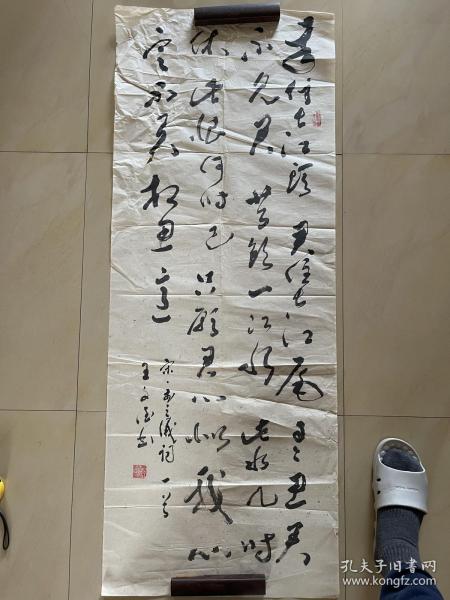 住长江頭君住长江尾日日思君
不见君共饮一江水此水几时
休此恨何时已只願君心似我心
定不负相思意
宋·李之儀词一首
王文书
孔夫子旧书网
www.kongfz.com